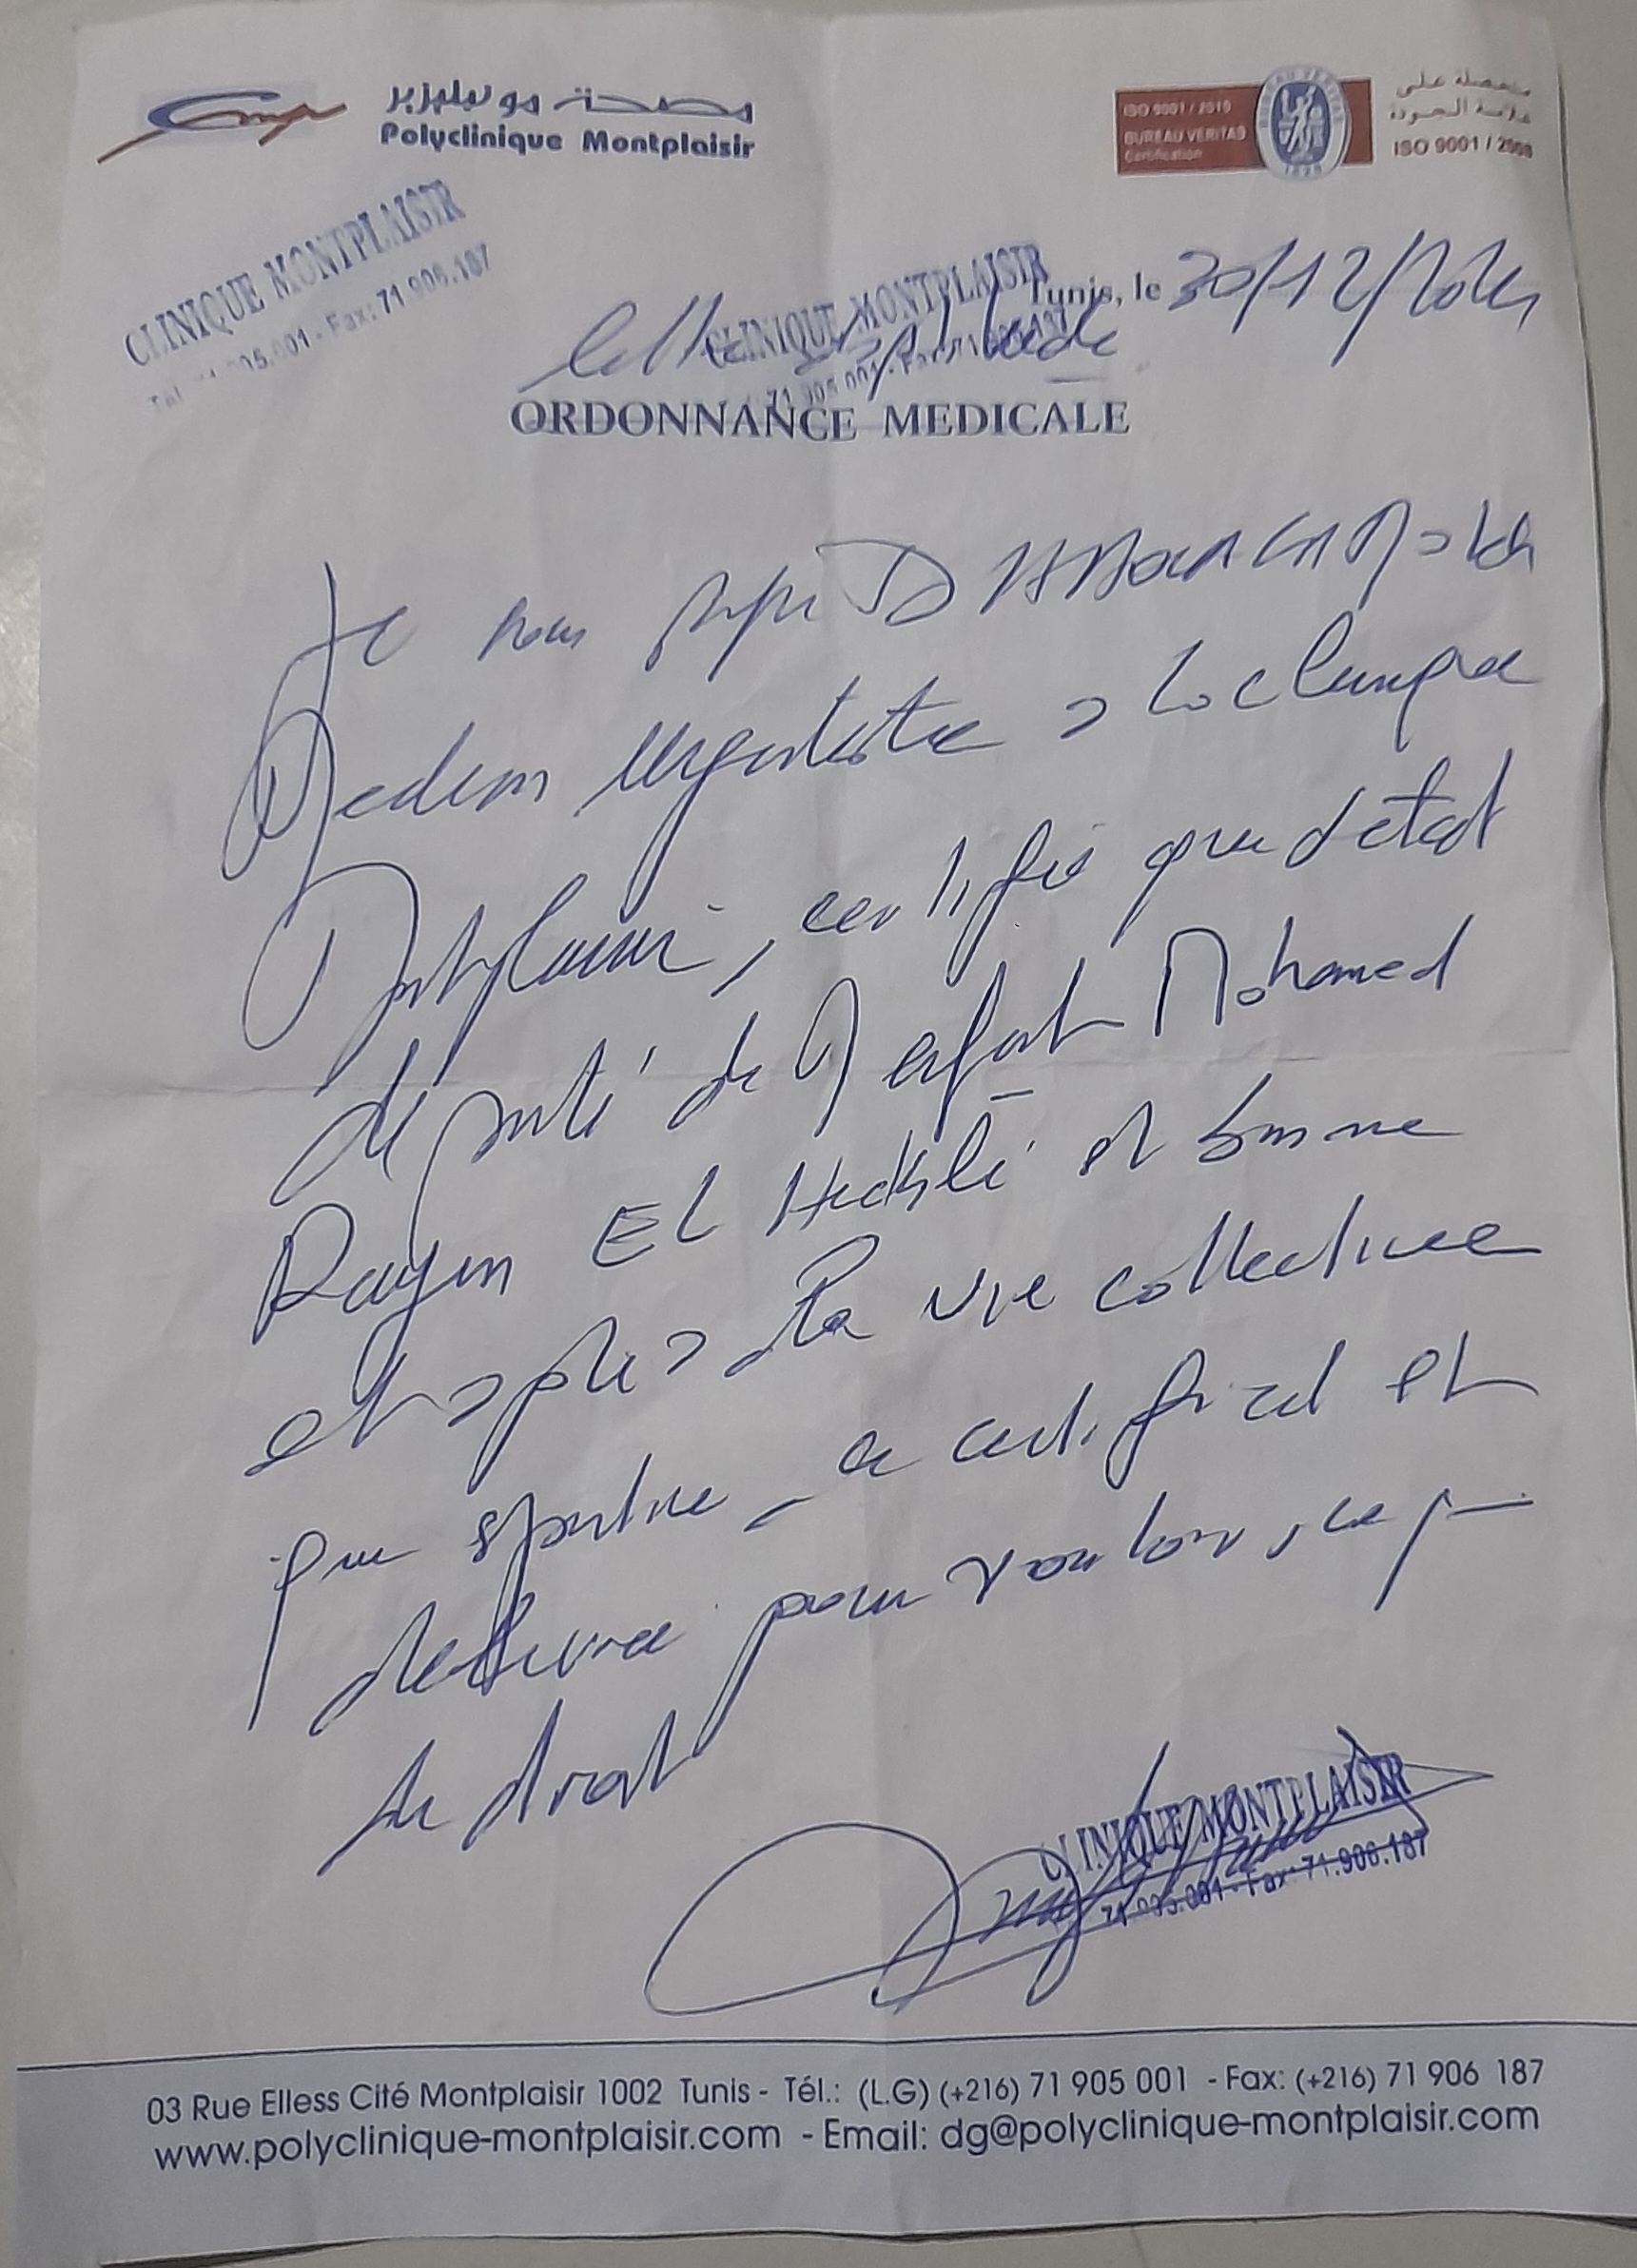 مصحة مونبليزير
Polyclinique Montplaisir
ISO 9001 / 2010
BUREAU VERITAS
Certification
1828
متحصلة على
علامة الجودة
ISO 9001 / 2008
CLINIQUE MONTPLAISIR
05.001 - Fax: 71.906.187
CLINIQUE MONTPLAISIR
71 905 001
Tunis, le 30/12/2024
ORDONNANCE MEDICALE
Je
Medecin urgentiste a la clinique
Montplaisir, certifie que l'etat
de santé de l'enfant Mohamed
Rayen El et bonne
et apte a la vie collective
que sportive - ce certificat et
delivré pour valoir, ce q
de droit
CLINIQUE MONTPLAISIR
71 905.001 - Fax: 71.906.187
03 Rue Elless Cité Montplaisir 1002 Tunis - Tél.: (L.G) (+216) 71 905 001 - Fax: (+216) 71 906 187
www.polyclinique-montplaisir.com - Email: dg@polyclinique-montplaisir.com